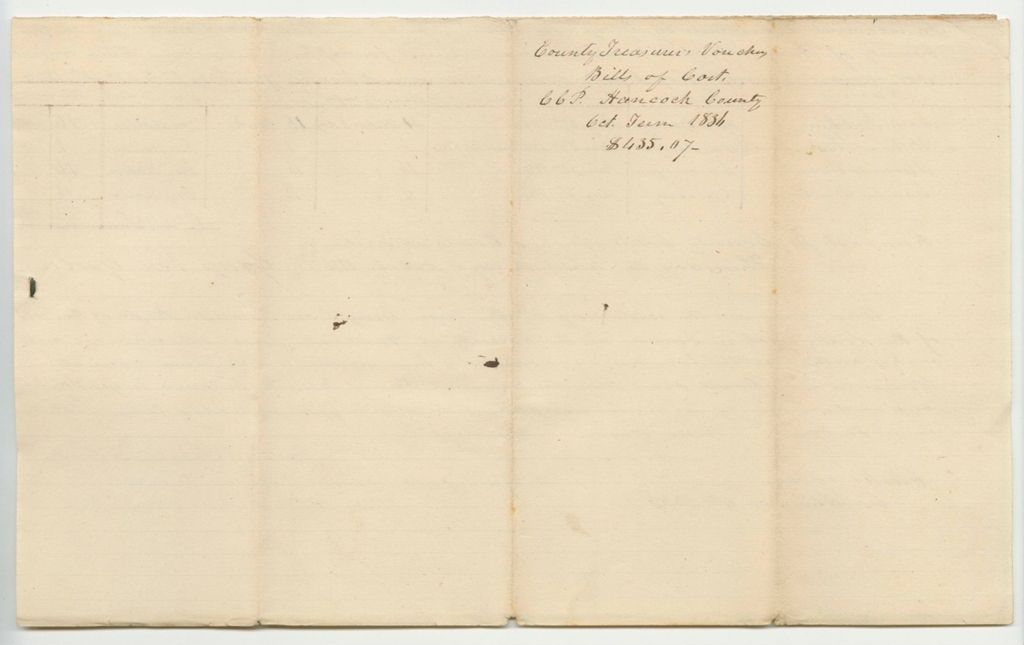 County Treasurers Voucher
Bills of Cost
C C P. Hancock County
Oct. Term 1834
$435.07-